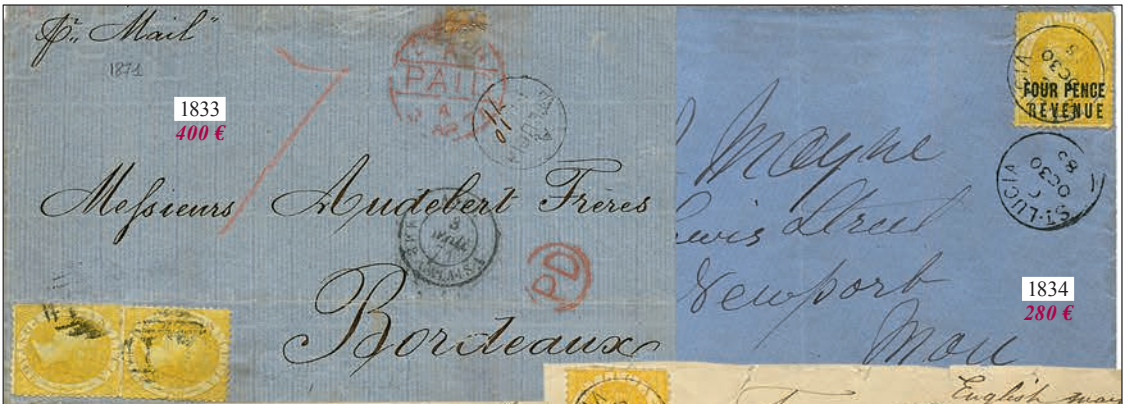 pr. Mail"
1871
1833
400 €
PAID
Messieurs Audebert Frères
PD
Bordeaux
FOUR PENCE
REVENUE
ST. LUCIA
C
OC 30
83
Mayne
Lewis Street
Newport
Mon
1834
280 €
English